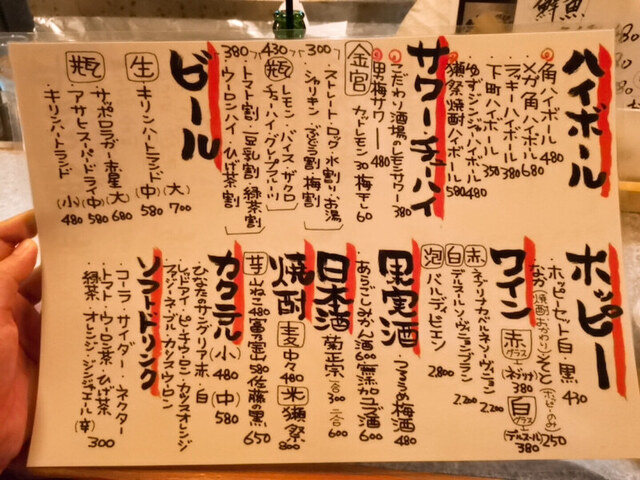 ハイボール
角ハイボール 480
メガ角ハイボール 680
ラッキーハイボール 380
下町ハイボール 350
ゆずジンジャーハイボール 480
獺祭焼酎ハイボール 580
サワー・チューハイ
こだわり酒場のレモンサワー 380
男梅サワー 480
金宮
カットレモン30 梅干し60
300
ストレート・ロック・水割り・お湯
シャリキン・ぶどう割・梅割
430
瓶
レモン・バイス・ザクロ
チューハイ・グレープフルーツ
380
トマト割・豆乳割・緑茶割
ウーロンハイ・ひげ茶割
ビール
生
キリンハートランド (大) 700
(中) 580
瓶
サッポロラガー赤星(大) 680
アサヒスーパードライ(中) 580
キリンハートランド (小) 480
ホッピー
ホッピーセット白・黒 430
なか 250
ワイン
赤グラス 380
白グラス 380
赤
2.200
白
2.200
泡 バルディビエソ 2.800
果実酒
つるうめ梅酒 480
あらごしみかん酒 600
日本酒
菊正宗 一合 300 二合 600
焼酎
麦 中々 480
米 獺祭 800
芋
佐藤の黒 650
カクテル (小) 480 (中) 580
ひなたのサングリア赤・白
レッドアイ・ピーチウーロン・カシスオレンジ
ファジーネーブル・カシスウーロン
ソフトドリンク
コーラ・サイダー・ネクター
トマト・ウーロン茶・ひげ茶
緑茶 オレンジ・ジンジャエール(辛) 300
鮮魚